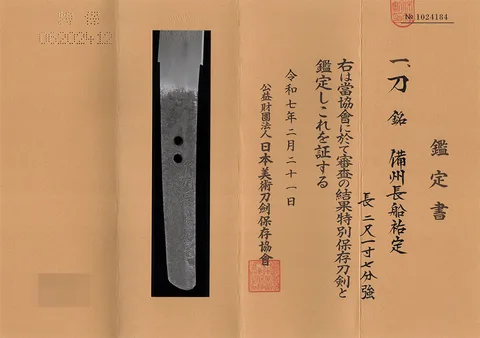 鑑定書
一、刀 銘 備州長船祐定
長二尺一寸七分強
右は當協會に於て審査の結果特別保存刀劍と
鑑定しこれを証する
令和七年二月二十一日
公益財團法人 日本美術刀劍保存協會
№ 1024184
06202412